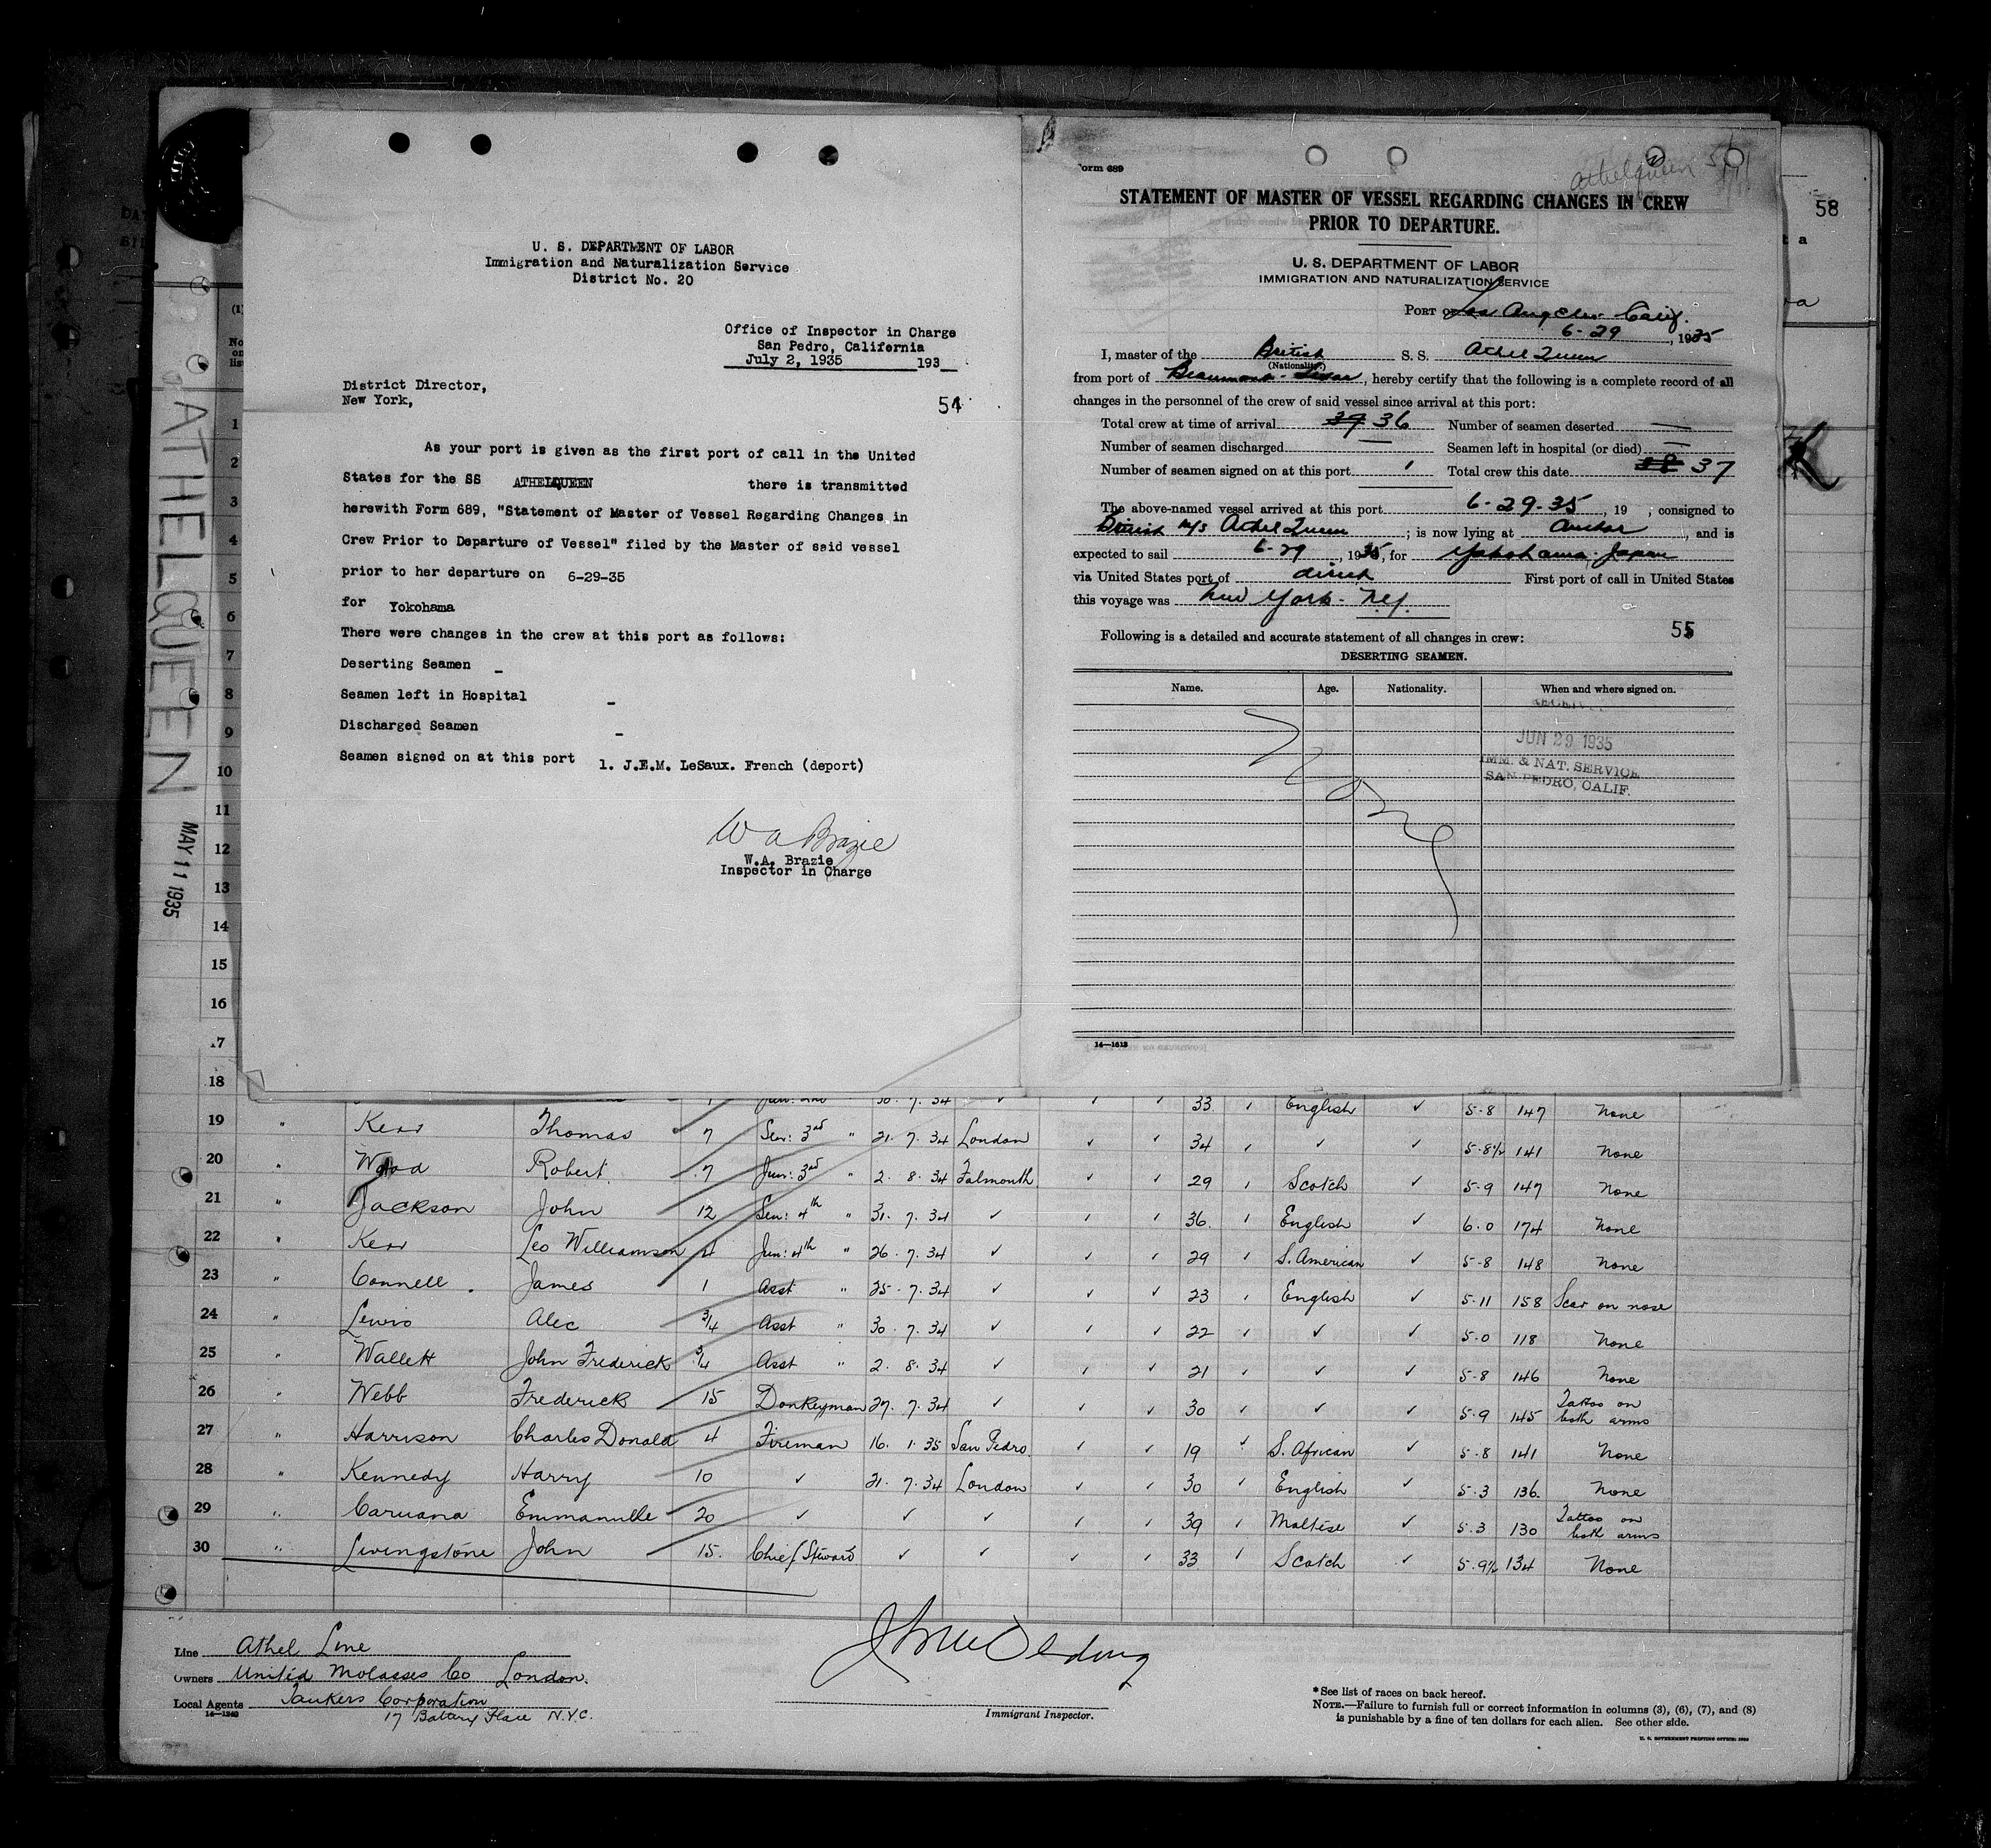 U. S. DEPARTMENT OF LABOR
Immigration and Naturalization Service
District No. 20
Office of Inspector in Charge
San Pedro, California
July 2, 1935 193
District Director,
New York,
54
As your port is given as the first port of call in the United
States for the SS ATHELQUEEN there is transmitted
herewith Form 689, "Statement of Master of Vessel Regarding Changes in
Crew Prior to Departure of Vessel" filed by the Master of said vessel
prior to her departure on 6-29-35
for Yokohama
There were changes in the crew at this port as follows:
Deserting Seamen -
Seamen left in Hospital -
Discharged Seamen -
Seamen signed on at this port 1. J.E.M. LeSaux. French (deport)
W A Brazie
W.A. Brazie
Inspector in Charge
orm 689
Athelqueen
STATEMENT OF MASTER OF VESSEL REGARDING CHANGES IN CREW
PRIOR TO DEPARTURE.
U. S. DEPARTMENT OF LABOR
IMMIGRATION AND NATURALIZATION SERVICE
PORT OF Los Angeles Calif.
6-29, 1935
I, master of the British S. S. Athel Queen
(Nationality)
from port of Beaumont - Texas, hereby certify that the following is a complete record of all
changes in the personnel of the crew of said vessel since arrival at this port:
Total crew at time of arrival 39 36 Number of seamen deserted —
Number of seamen discharged — Seamen left in hospital (or died) —
Number of seamen signed on at this port 1 Total crew this date 38 37
The above-named vessel arrived at this port 6-29-35, 19 ; consigned to
British M/S Athel Queen; is now lying at anchor, and is
expected to sail 6-29, 1935, for Yokohama, Japan
via United States port of direct First port of call in United States
this voyage was New York - N.Y.
55
Following is a detailed and accurate statement of all changes in crew:
DESERTING SEAMEN.
Name. Age. Nationality. When and where signed on.
None
JUN 29 1935
IMM. & NAT. SERVICE
SAN PEDRO, CALIF.
14—1613
58
ATHELQUEEN
MAY 11 1935
1
2
3
4
5
6
7
8
9
10
11
12
13
14
15
16
17
18
30 . 7 . 34 ✓ ✓ ✓ 33 ✓ English ✓ 5-8 147 None
19 " Kerr Thomas 7 Sen: 3rd " 21. 7. 34 London ✓ ✓ 34 ✓ ✓ ✓ 5-8½ 141 None
20 " Wood Robert 7 Jun: 3rd " 2. 8. 34 Falmouth ✓ ✓ 29 ✓ Scotch ✓ 5-9 147 None
21 " Jackson John 12 Sen: 4th " 31. 7. 34 ✓ ✓ ✓ 36 ✓ English ✓ 6.0 174 None
22 " Kerr Leo Williamson 4 Jun: 4th " 26. 7. 34 ✓ ✓ ✓ 29 ✓ S. American ✓ 5-8 148 None
23 " Connell James 1 Asst " 25. 7. 34 ✓ ✓ ✓ 23 ✓ English ✓ 5.11 158 Scar on nose
24 " Lewis Alec 3/4 Asst " 30. 7. 34 ✓ ✓ ✓ 22 ✓ ✓ ✓ 5.0 118 None
25 " Wallett John Frederick 3/4 Asst " 2. 8. 34 ✓ ✓ ✓ 21 ✓ ✓ ✓ 5-8 146 None
26 " Webb Frederick 15 Donkeyman 27. 7. 34 ✓ ✓ ✓ 30 ✓ ✓ ✓ 5-9 145 Tattoo on both arms
27 " Harrison Charles Donald 4 Fireman 16. 1. 35 San Pedro ✓ ✓ 19 ✓ S. African ✓ 5-8 141 None
28 " Kennedy Harry 10 ✓ 21. 7. 34 London ✓ ✓ 30 ✓ English ✓ 5.3 136. None
29 " Caruana Emmanuelle 20 ✓ ✓ ✓ ✓ ✓ 39 ✓ Maltese ✓ 5.3 130 Tattoo on both arms
30 " Livingstone John 15. Chief Steward ✓ ✓ ✓ ✓ 33 ✓ Scotch ✓ 5.9½ 134 None
Line Athel Line
Owners United Molasses Co London.
Local Agents Tankers Corporation
14—1240 17 Battery Place N.Y.C.
Immigrant Inspector.
*See list of races on back hereof.
NOTE.—Failure to furnish full or correct information in columns (3), (6), (7), and (8)
is punishable by a fine of ten dollars for each alien. See other side.
U. S. GOVERNMENT PRINTING OFFICE